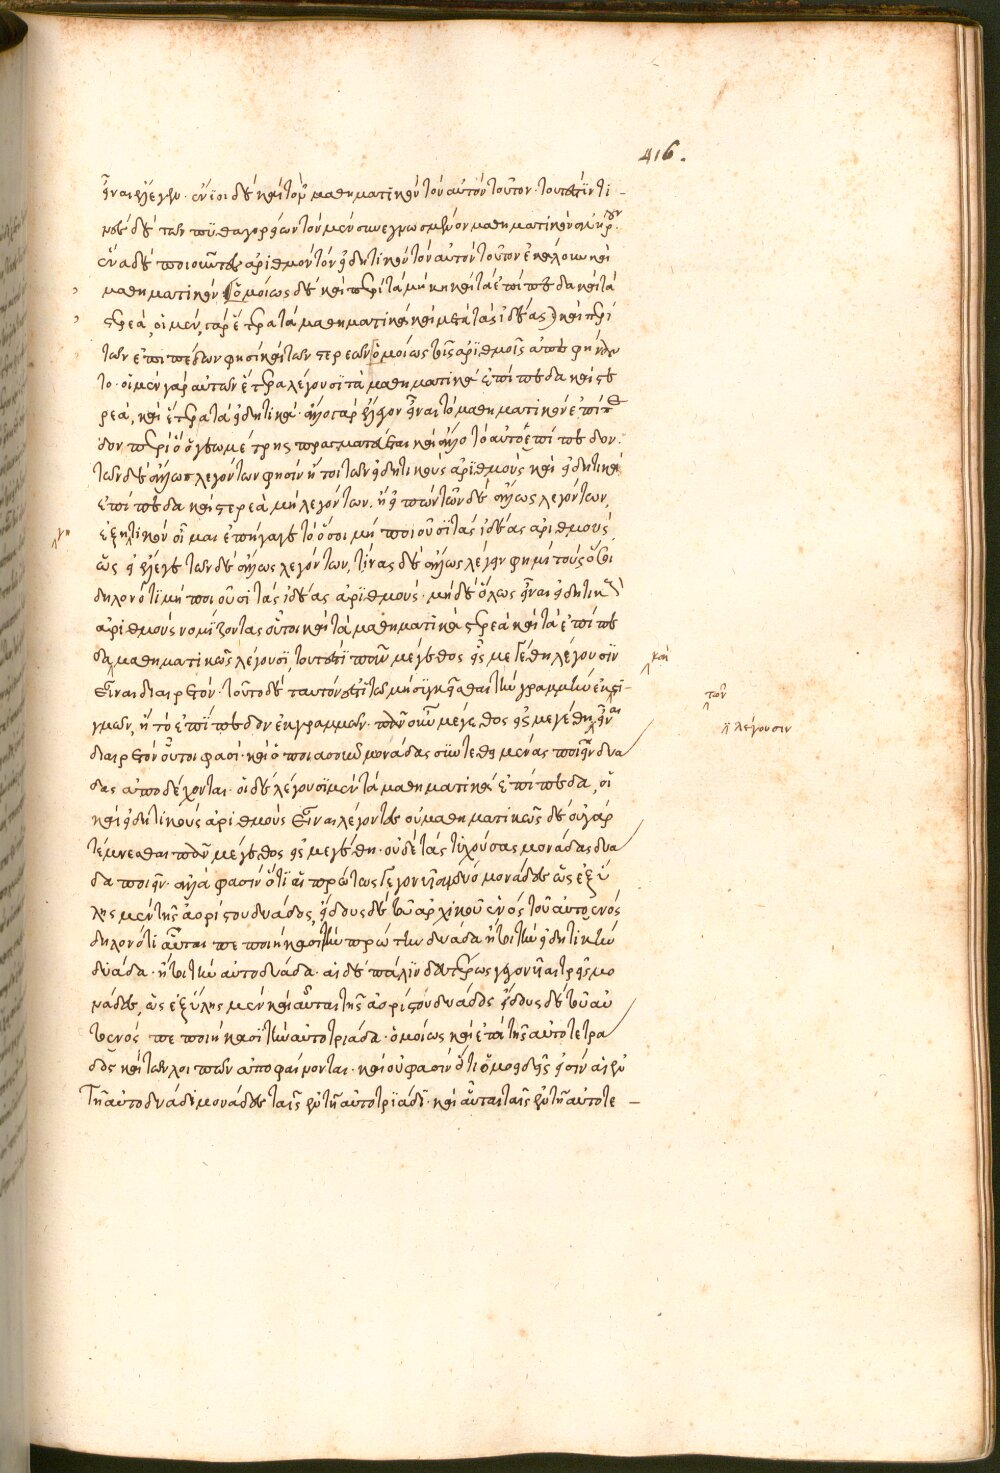 416.
εἶναι ἔλεγεν. ἔνιοι δὲ καὶ τὸν μαθηματικὸν τὸν αὐτὸν τοῦτον. τουτέστι τι-
νὲς δὲ τῶν πυθαγορείων τὸν μὲν συνεγνωσμένον μαθηματικὸν
ἕνα δὲ ποιοῦντες ἀριθμὸν τὸν εἰδητικὸν τὸν αὐτὸν τοῦτον ἐκάλουν καὶ
μαθηματικόν. ὁμοίως δὲ καὶ περὶ τὰ μήκη καὶ τὰ ἐπίπεδα καὶ τὰ
στερεά, οἱ μὲν γὰρ ἕτερα τὰ μαθηματικὰ καὶ μετὰ τὰς ἰδέας) καὶ περὶ
τῶν ἐπιπέδων φησὶ καὶ τῶν στερεῶν ὁμοίως τοῖς ἀριθμοῖς ἀπεφήναν
το. οἱ μὲν γὰρ αὐτῶν ἕτερα λέγουσι τὰ μαθηματικὰ ἐπίπεδα καὶ στε
ρεά, καὶ ἕτερα τὰ εἰδητικά. ἄλλο γὰρ ἔλεγον εἶναι τὸ μαθηματικὸν ἐπίπε
δον περὶ ὃ ὁ γεωμέτρης πραγματεύεται καὶ ἄλλο τὸ αὐτοεπίπεδον.
τῶν δὲ ἄλλως λεγόντων φησὶν ἤτοι τῶν εἰδητικοὺς ἀριθμοὺς καὶ εἰδητικὰ
ἐπίπεδα καὶ στερεὰ μὴ λεγόντων. ἢ εἰπὼν τῶν δὲ ἄλλως λεγόντων,
ἐξητικὸν οἶμαι ἐπήγαγε τὸ ὅσοι μὴ ποιοῦσι τὰς ἰδέας ἀριθμούς,
γη
ὡς εἰ ἔλεγε τῶν δὲ ἄλλως λεγόντων, τίνας δὲ ἄλλως λέγειν φημὶ τοὺς ὅσοι
δηλονότι μὴ ποιοῦσι τὰς ἰδέας ἀριθμούς. μὴ δὲ ὅλως εἶναι εἰδητικοὺς
ἀριθμοὺς νομίζοντας οὗτοι καὶ τὰ μαθηματικὰ στερεὰ καὶ τὰ ἐπίπε
δα μαθηματικῶς λέγουσι, τουτέστι πᾶν μέγεθος εἰς μεγέθη λέγουσιν
καὶ
εἶναι διαιρετόν. τοῦτο δὲ ταυτόν ἐστι τῷ μὴ συγκεῖσθαι τὴν γραμμὴν ἐκ στι-
τῶν
γμῶν, ἢ τὸ ἐπίπεδον ἐκ γραμμῶν. πᾶν οὖν μέγεθος εἰς μεγέθη εἶναι
ἢ λέγουσιν
διαιρετὸν οὗτοι φασί. καὶ ὁποιασοῦν μονάδας συντεθειμένας ποιεῖν δυα
δας ἀποδέχονται. οἱ δὲ λέγουσι μὲν τὰ μαθηματικὰ ἐπίπεδα, οἱ
καὶ εἰδητικοὺς ἀριθμοὺς εἶναι λέγοντες οὐ μαθηματικῶς δὲ οὐ γὰρ
τέμνεσθαι πᾶν μέγεθος εἰς μεγέθη. οὐδὲ τὰς τυχούσας μονάδας δυα
δα ποιεῖν. ἀλλά φασιν ὅτι αἱ πρώτως γεγονυῖαι δύο μονάδες ὡς ἐξ ὕ
λης μὲν τῆς ἀορίστου δυάδος, εἴδους δὲ τοῦ ἀρχικοῦ ἑνὸς τοῦ αὐτοενὸς
δηλονότι αὗται πεποιήκασι τὴν πρώτην δυάδα ἤτοι τὴν εἰδητικὴν
δυάδα. ἤτοι τὴν αὐτοδυάδα. αἱ δὲ πάλιν δευτέρως γεγονυῖαι τρεῖς μο
νάδες, ὡς ἐξ ὕλης μὲν καὶ αὗται τῆς ἀορίστου δυάδος εἴδους δὲ τοῦ αὐ
τοενὸς πεποιήκασι τὴν αὐτοτριάδα. ὁμοίως καὶ ἐπὶ τῆς αὐτοτετρα
δος καὶ τῶν λοιπῶν ἀποφαίνονται. καὶ οὔ φασιν ὅτι ὁμοειδεῖς εἰσὶν αἱ ἐν
τῇ αὐτοδυάδι μονάδες ταῖς ἐν τῇ αὐτοτριάδι. καὶ αὗται ταῖς ἐν τῇ αὐτοτε-